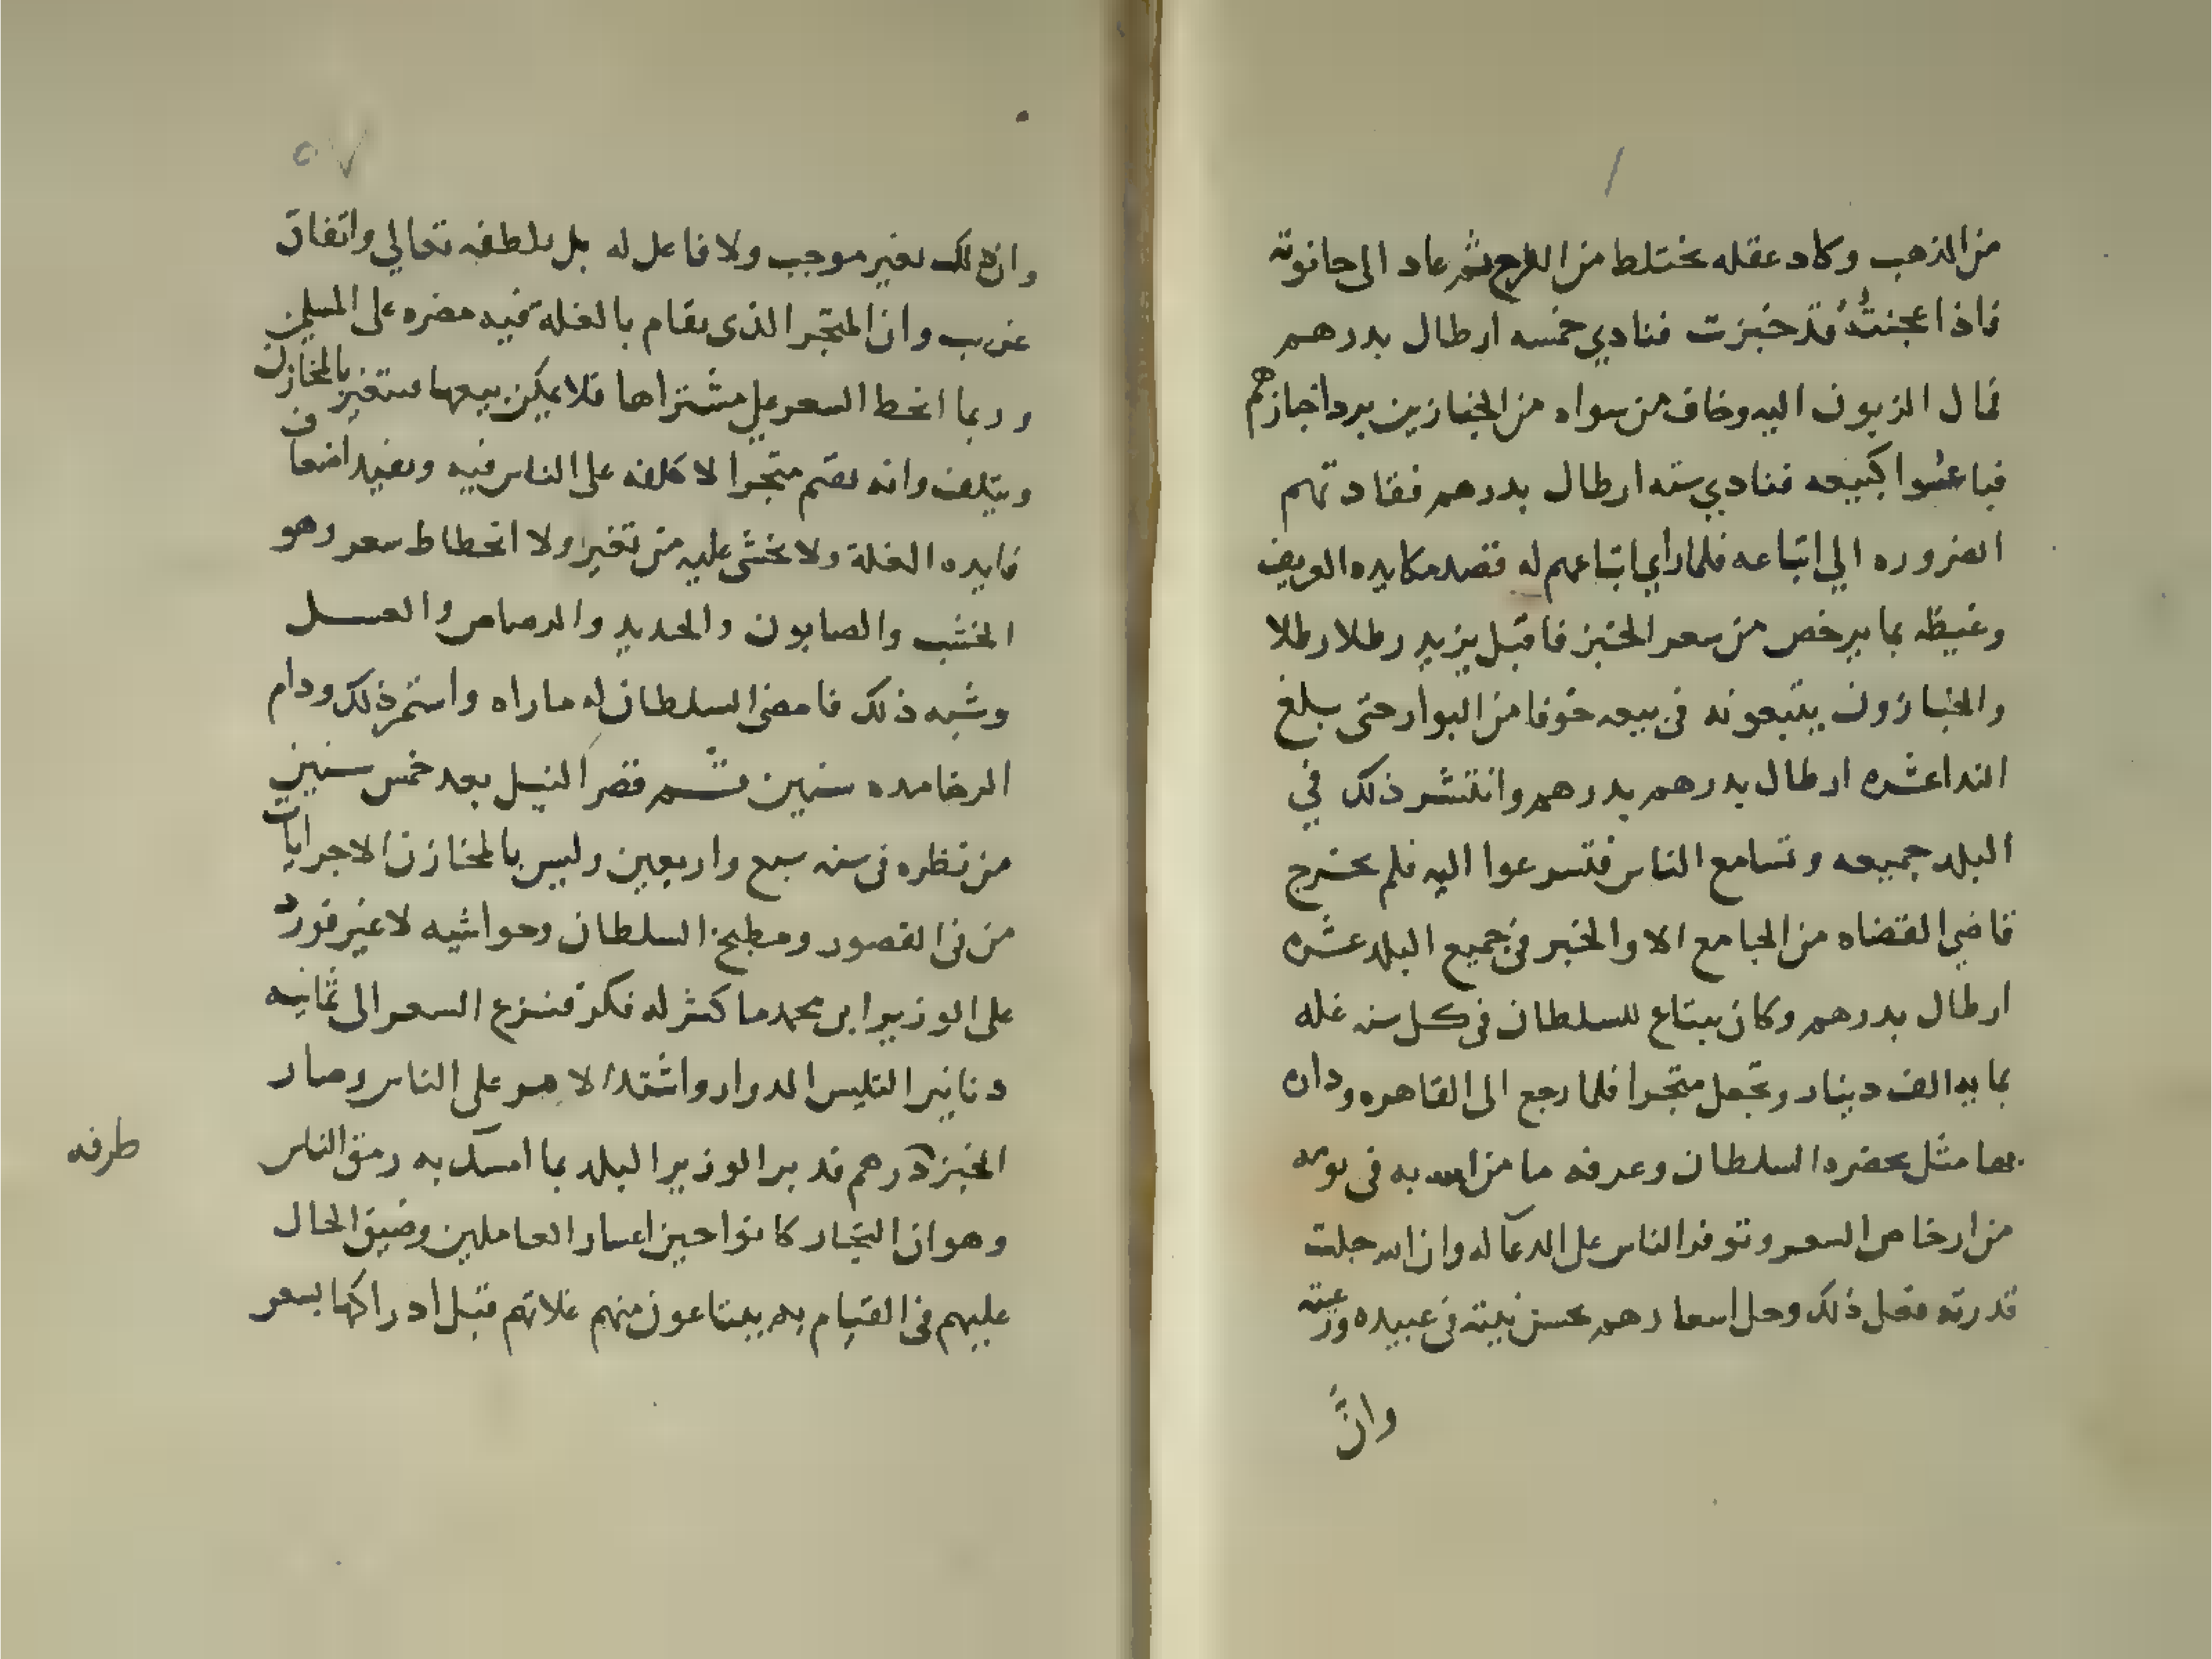 من الذهب وكاد عقله يختلط من الفرح ثم عاد الى حانوته
فاذا عجنته قد خبزت فنادي خمسه ارطال بدرهم
فمال الزبون اليه وخاف من سواه من الخبازين برد اخبازهم
فباعوا كبيعه فنادي سته ارطال بدرهم فقادتهم
الضروره الي اتباعه فلما راي اتباعهم له قصد مكايده العريف
وغيظه بما يرخص من سعر الخبز فاقبل يزيد رطلا رطلا
والخبازون يتبعونه في بيعه خوفا من البوار حتى بلغ
الندا عشره ارطال بدرهم بدرهم وانتشر ذلك في
البلد جميعه وتسامع الناس فتسرعوا اليه فلم يخرج
قاضي القضاه من الجامع الا والخبر في جميع البلد عشره
ارطال بدرهم وكان يبتاع للسلطان في كل سنه غله
بمايه الف دينار وتجعل متجرا فلما رجع الى القاهره
مثل بحضره السلطان وعرفه ما من الله به في يومه
من ارخاص السعر وتوفر الناس على الدعآ له وان الله جلت
قدرته فعل ذلك وحل اسعارهم بحسن نيته في عبيده ورعيته
وانَّ
٥٧
وان ذلك بغير موجب ولا فاعل له بل بلطفه تعالي واتفاق
غريب وان المتجر الذي يقام بالغله فيه مضره على المسلمين
وربما انحط السعر على مشتراها فلا يمكن بيعها فتتغير بالمخازن
ويتلف وانه يقيم متجرا لا كلفه على الناس فيه ويفيد اضعاف
فايده الغلة ولا يخشى عليه من تغير ولا انحطاط سعر وهو
الخشب والصابون والحديد والرصاص والعسل
وشبه ذلك فامضى السلطان له ماراه واستمر ذلك ودام
الرخا مده سنين ثم قصر النيل بعد خمس سنين
من نظره في سنه سبع واربعين وليس بالمخازن الا جرايات
من في القصور ومطبخ السلطان وحواشيه لا غير فورد
على الوزير ابي محمد ما كثر له فكره فنزع السعر الى ثمانيه
دنانير التليس الدوار واشتد الامر على الناس وصار
الخبز درهم فدبر الوزير البلد بما امسك به رمق الناس
وهو ان التجار كانوا حين اعسار العاملين وضيق الحال
عليهم في القيام به يبتاعون منهم غلاتهم قبل ادراكها بسعر
طرفه